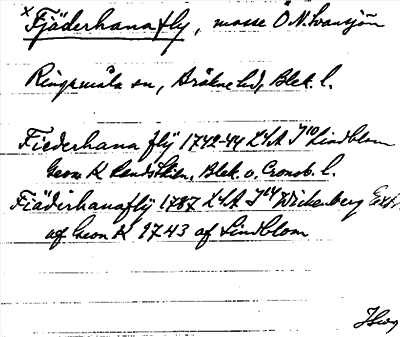 x Fjäderhanafly, mosse Ö N. Svansjön
Ringamåla sn, Bräkne hd, Blek. l.
Fiederhana flÿ 1742-44 LSA J10 Lindblom
Geom K Rendsskiln. Blek. o. Cronob. l.
Fiäderhanaflÿ 1787 LSA J14 Wickenberg Extr.
af Geom K 1743 af Lindblom